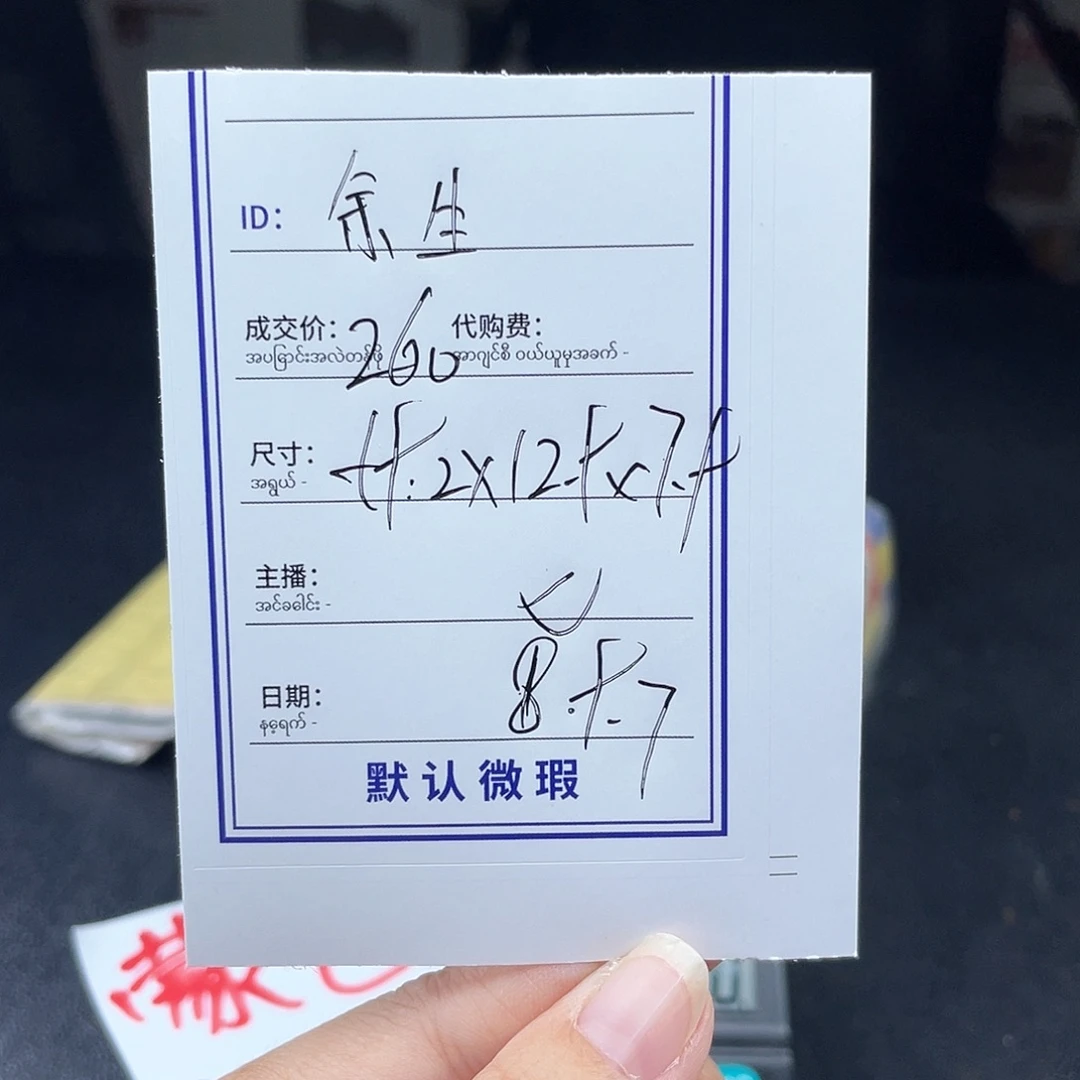 ID: 余生
成交价: 260 代购费:
အပြောင်းအလဲတန်ဖိုး အာဂျင်စီ ဝယ်ယူမှုအခက် -
尺寸: 45.2×12.5×7.5
အရွယ် -
主播:
အင်ခေါင်း -
日期: 8.5.7
နေ့ရက် -
默认微瑕
蒙